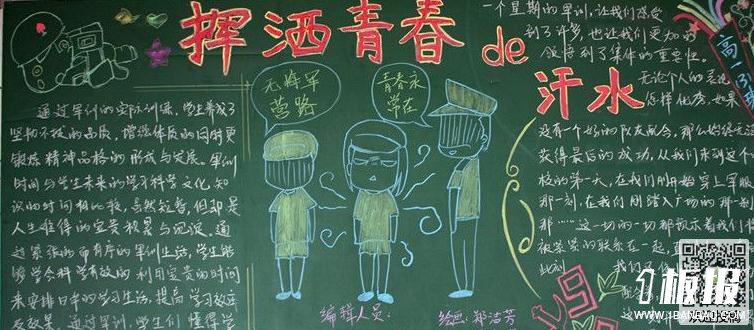 挥洒青春
de
汗水
无将军
营路
青春永
常在
通过军训的实际训练，学生养成了
坚韧不拔的品质，增强体质的同时更
锻炼精神品格的形成与发展。军训
时间与学生未来的学习科学文化知
识的时间相比较，虽然短暂，但却是
人生难得的宝贵积累与沉淀。通
过紧张的而有序的军训生活，学生能
够学会科学有效的利用宝贵的时间
来安排日中的学习生活，提高学习效率
及效果。通过军训，学生们懂得学
一个星期的军训，让我们感受
到了许多，也让我们更加的
领悟到了集体的重要性。
无论个人的
怎样优秀，如果
没有一个好的队友配合，那么始终无
获得最后的成功，从我们来到这个
校的第一天，在我们刚开始穿上军服
那一刻，在我们刚踏入广场的那一
那一切的一切都预示着我们
被紧紧的联系在一起，
此刻
编辑人员：
绘画：郑洁芳
板报
WWW.1BANBAO.COM